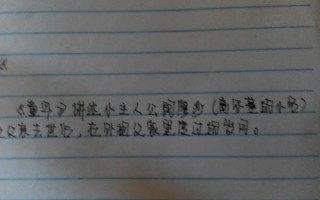 《童年》讲述小主人公阿廖沙（高尔基的小名）
父亲去世后，在外祖父家里度过的岁月。